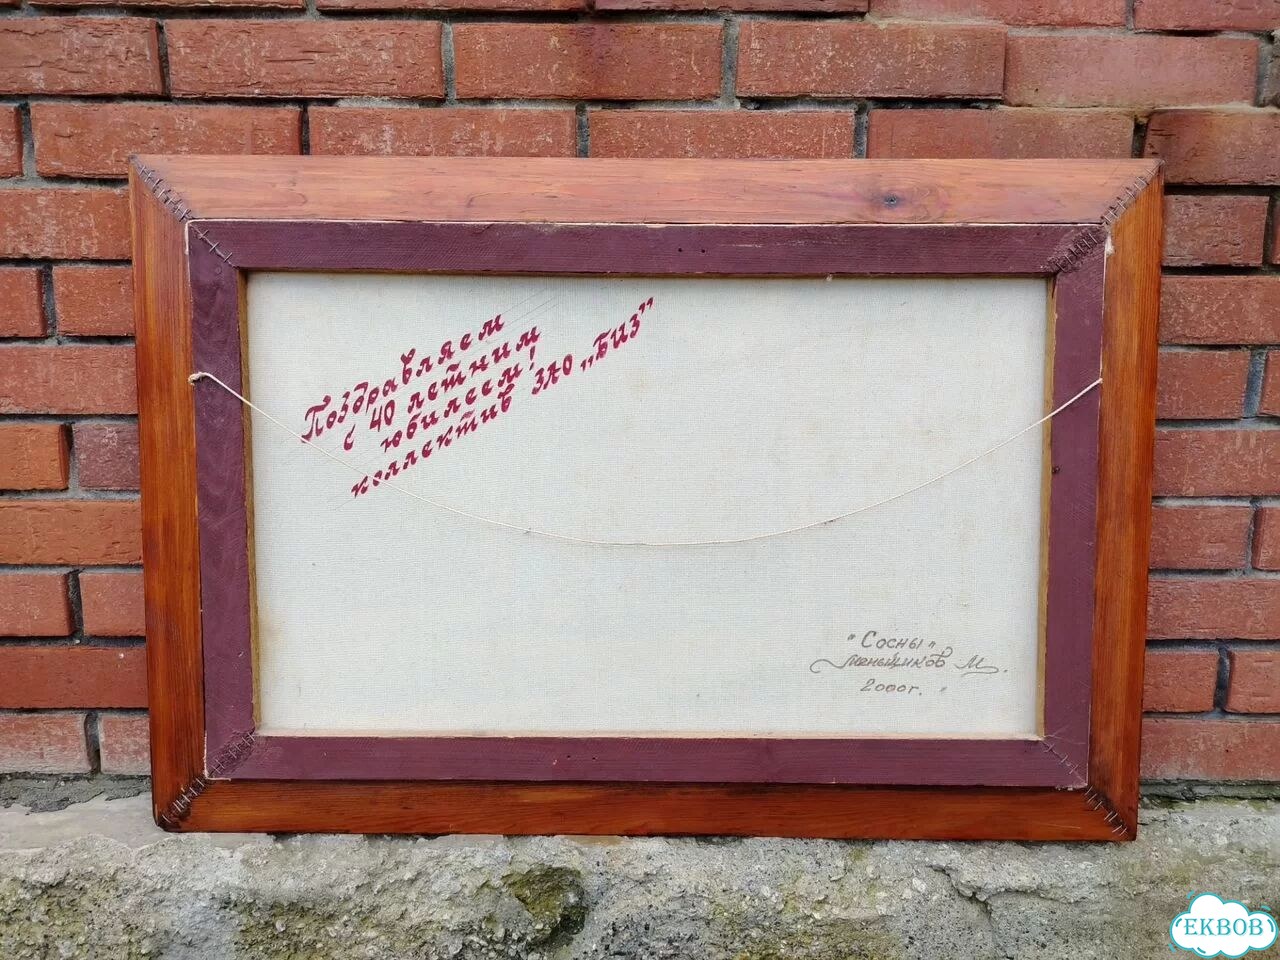 Поздравляем
с 40 летним
юбилеем!
коллектив ЗАО „БИЗ"
"Сосны"
Меньщиков М.
2000г.
EKBOB